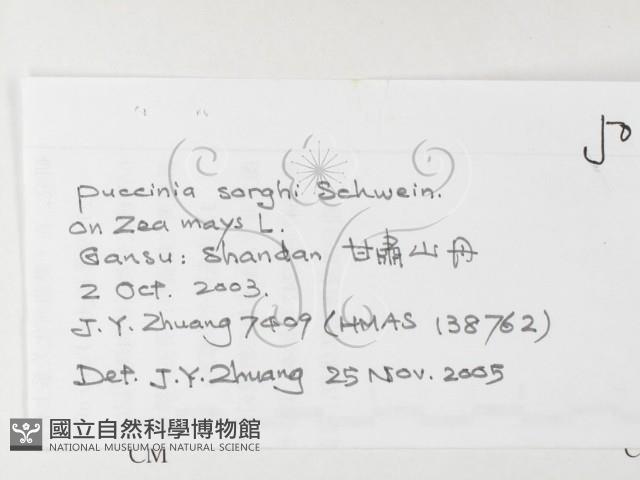 50
Puccinia sorghi Schwein.
on Zea mays L.
Gansu: Shandan 甘肅山丹
2 Oct. 2003.
J.Y. Zhuang 7409 (HMAS 138762)
Det. J.Y. Zhuang 25 Nov. 2005
國立自然科學博物館
NATIONAL MUSEUM OF NATURAL SCIENCE
CM